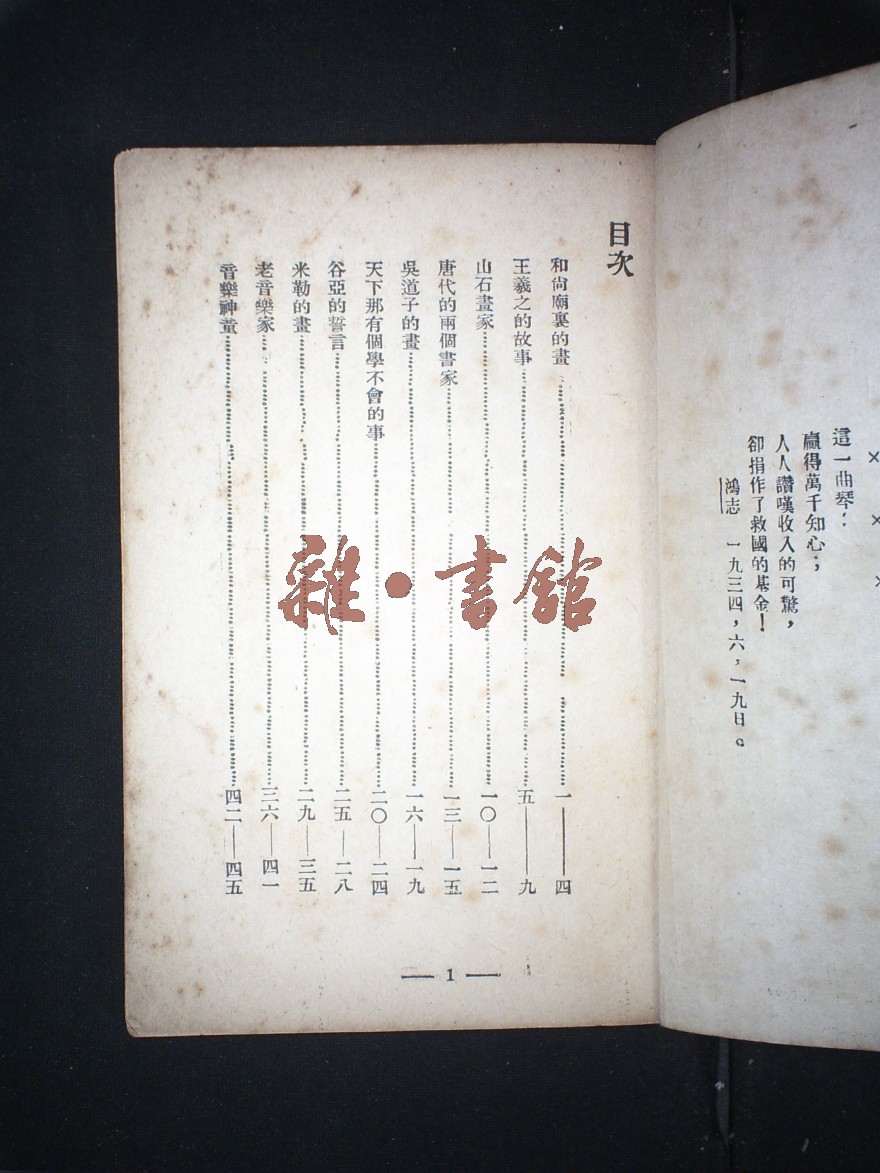 這一曲琴：
贏得萬千知心；
人人讚嘆收入的可驚，
卻捐作了救國的基金！
鴻志 一九三四，六，一九日。
目次
和尙廟裏的畫 一——四
王羲之的故事 五——九
山石畫家 一〇—一二
唐代的兩個書家 一三—一五
吳道子的畫 一六—一九
天下那有個學不會的事 二〇—二四
谷亞的誓言 二五—二八
米勒的畫 二九—三五
老音樂家 三六—四一
音樂神童 四二—四五
— 1 —
雜·書館